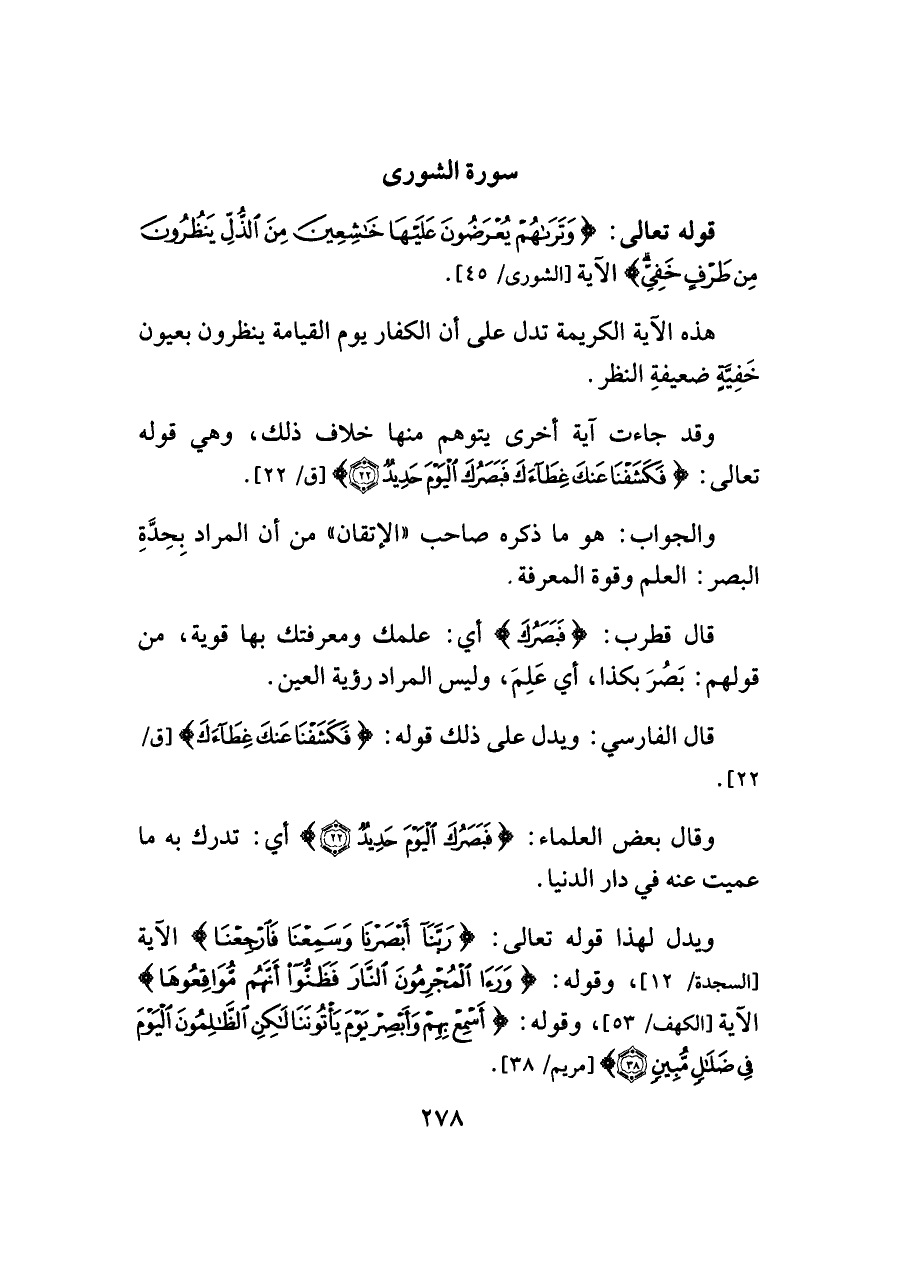 سورة الشورى
قوله تعالى: ﴿ وَتَرَىٰهُمْ يُعْرَضُونَ عَلَيْهَا خَٰشِعِينَ مِنَ ٱلذُّلِّ يَنظُرُونَ
مِن طَرْفٍ خَفِيٍّۗ﴾ الآية [الشورى/ ٤٥].
هذه الآية الكريمة تدل على أن الكفار يوم القيامة ينظرون بعيون
خَفِيَّةٍ ضعيفةِ النظر.
وقد جاءت آية أخرى يتوهم منها خلاف ذلك، وهي قوله
تعالى: ﴿ فَكَشَفْنَا عَنكَ غِطَآءَكَ فَبَصَرُكَ ٱلْيَوْمَ حَدِيدٌ ۝٢٢﴾ [ق/ ٢٢].
والجواب: هو ما ذكره صاحب «الإتقان» من أن المراد بِحِدَّةِ
البصر: العلم وقوة المعرفة.
قال قطرب: ﴿ فَبَصَرُكَ ﴾ أي: علمك ومعرفتك بها قوية، من
قولهم: بَصُرَ بكذا، أي عَلِمَ، وليس المراد رؤية العين.
قال الفارسي: ويدل على ذلك قوله: ﴿ فَكَشَفْنَا عَنكَ غِطَآءَكَ﴾ [ق/
٢٢].
وقال بعض العلماء: ﴿ فَبَصَرُكَ ٱلْيَوْمَ حَدِيدٌ ۝٢٢﴾ أي: تدرك به ما
عميت عنه في دار الدنيا.
ويدل لهذا قوله تعالى: ﴿ رَبَّنَآ أَبْصَرْنَا وَسَمِعْنَا فَٱرْجِعْنَا﴾ الآية
[السجدة/ ١٢]، وقوله: ﴿ وَرَءَا ٱلْمُجْرِمُونَ ٱلنَّارَ فَظَنُّوٓا۟ أَنَّهُم مُّوَاقِعُوهَا﴾
الآية [الكهف/ ٥٣]، وقوله: ﴿ أَسْمِعْ بِهِمْ وَأَبْصِرْ يَوْمَ يَأْتُونَنَا لَٰكِنِ ٱلظَّٰلِمُونَ ٱلْيَوْمَ
فِى ضَلَٰلٍ مُّبِينٍ ۝٣٨﴾ [مريم/ ٣٨].
٢٧٨